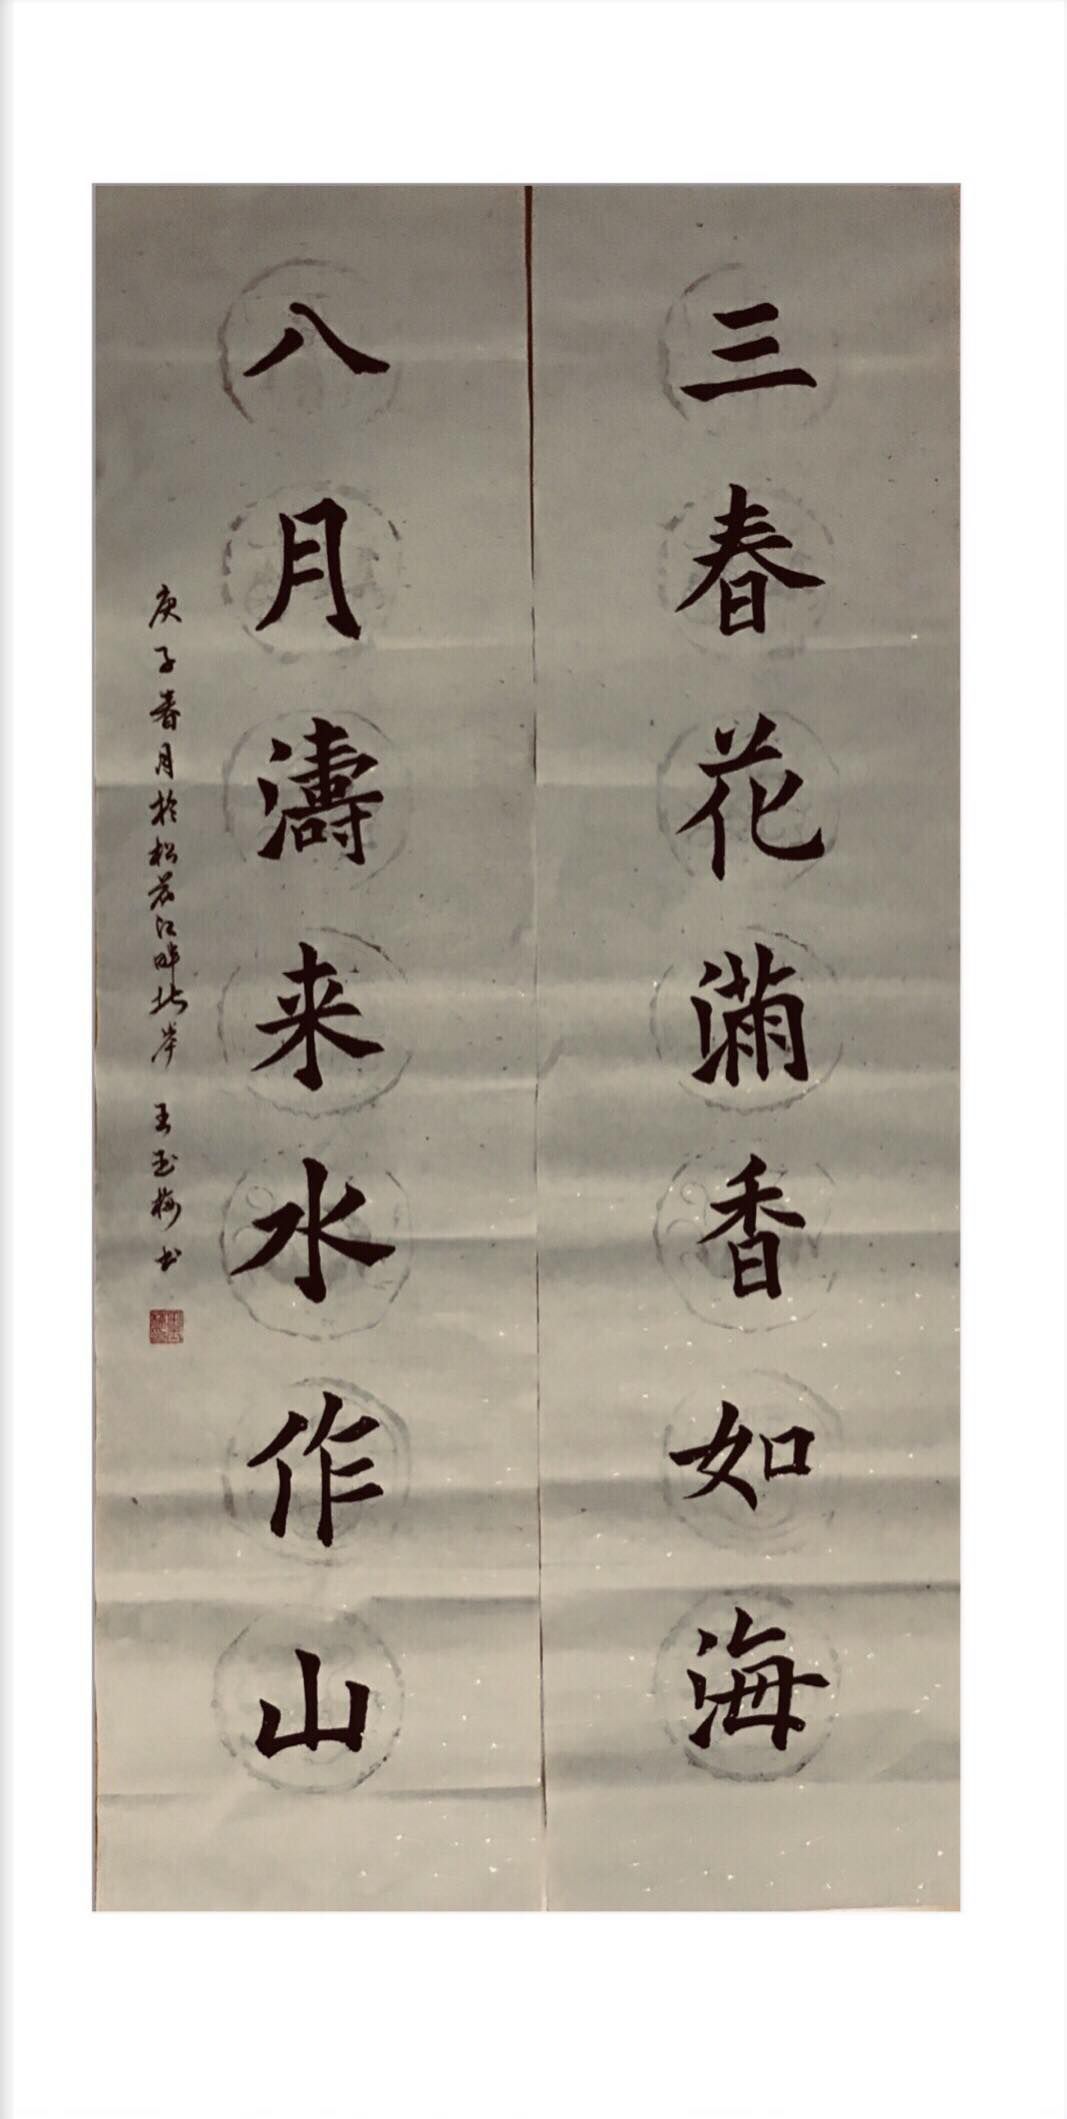 三春花滿香如海
八月濤来水作山
庚子春月於松花江畔北岸 王玉梅书